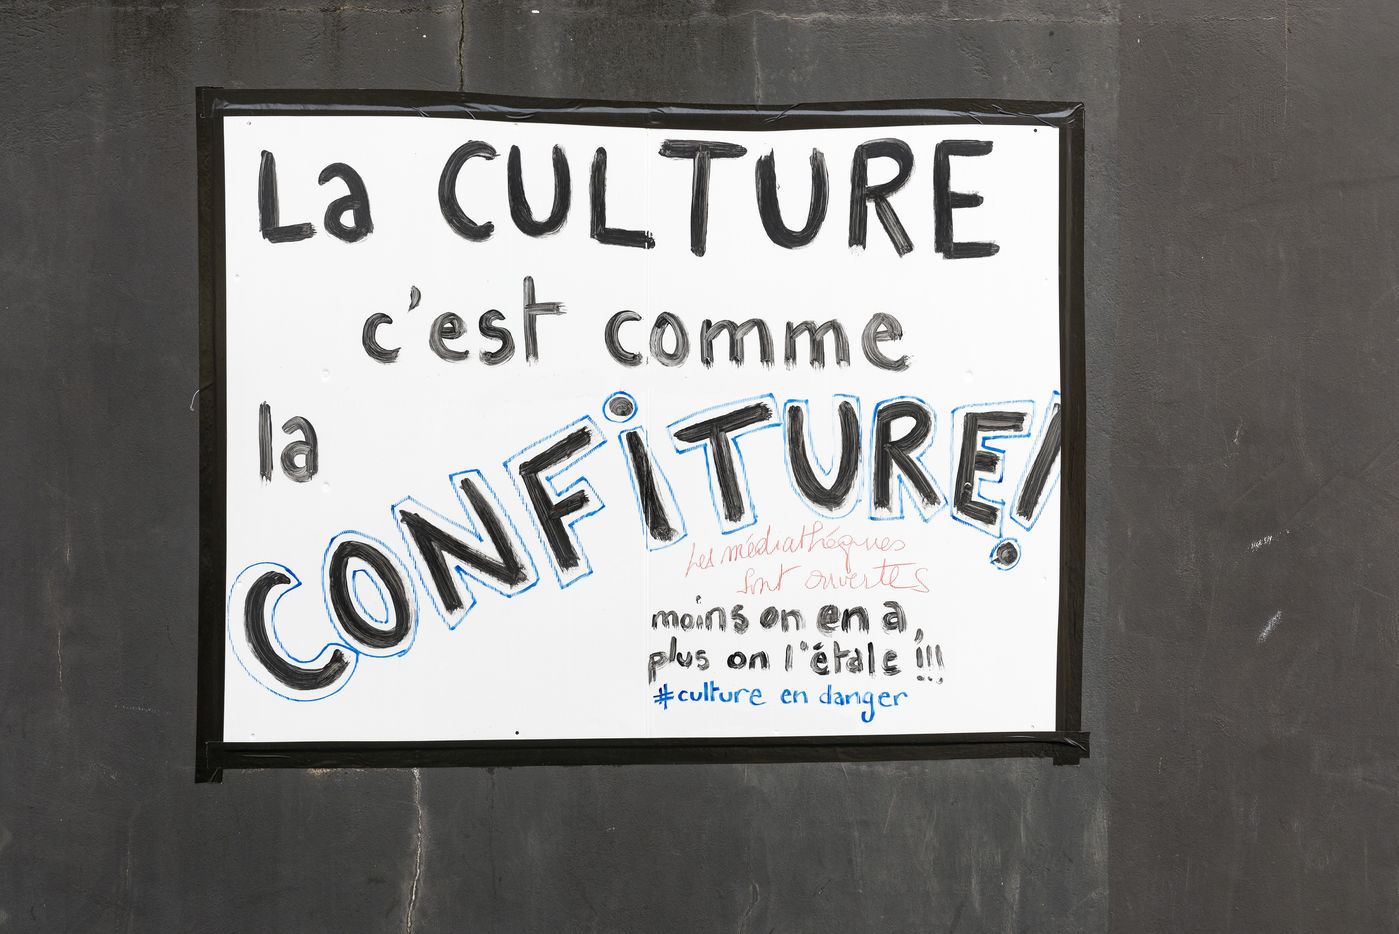 La CULTURE
c'est comme
la
CONFITURE!
Les médiathèques
sont ouvertes
moins on en a,
plus on l'étale !!!
#culture en danger